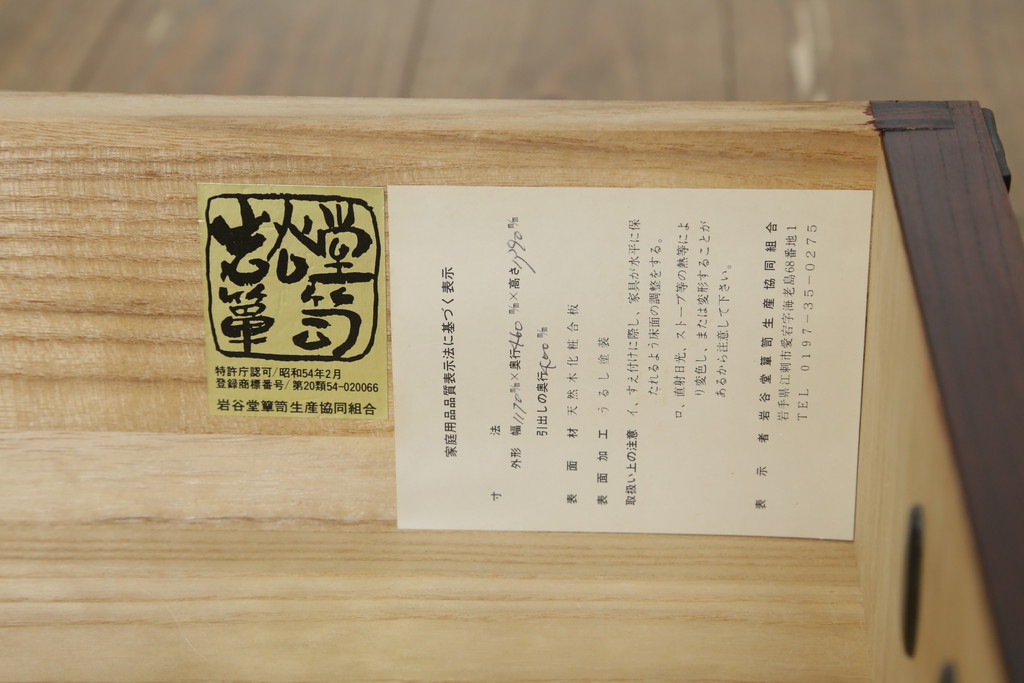 岩谷堂
簞笥
特許庁認可/昭和54年2月
登録商標番号/第20類54-020066
岩谷堂簞笥生産協同組合
家庭用品品質表示法に基づく表示
寸法
外形 幅1170㎜×奥行460㎜×高さ1290㎜
引出しの奥行400㎜
表面材 天然木化粧合板
表面加工 うるし塗装
取扱い上の注意 イ、すえ付けに際し、家具が水平に保
たれるよう床面の調整をする。
ロ、直射日光、ストーブ等の熱等によ
り変色し、または変形することが
あるから注意して下さい。
表示者 岩谷堂簞笥生産協同組合
岩手県江刺市愛宕字海老島68番地1
TEL 0197-35-0275